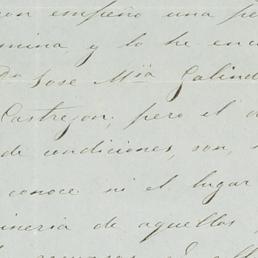 con empeño una pe
mina y lo he enc
Dn Jose Mìia Galind
Castrejon, pero el
de condiciones, son,
conoce ni el lugar
ineria de aquellos